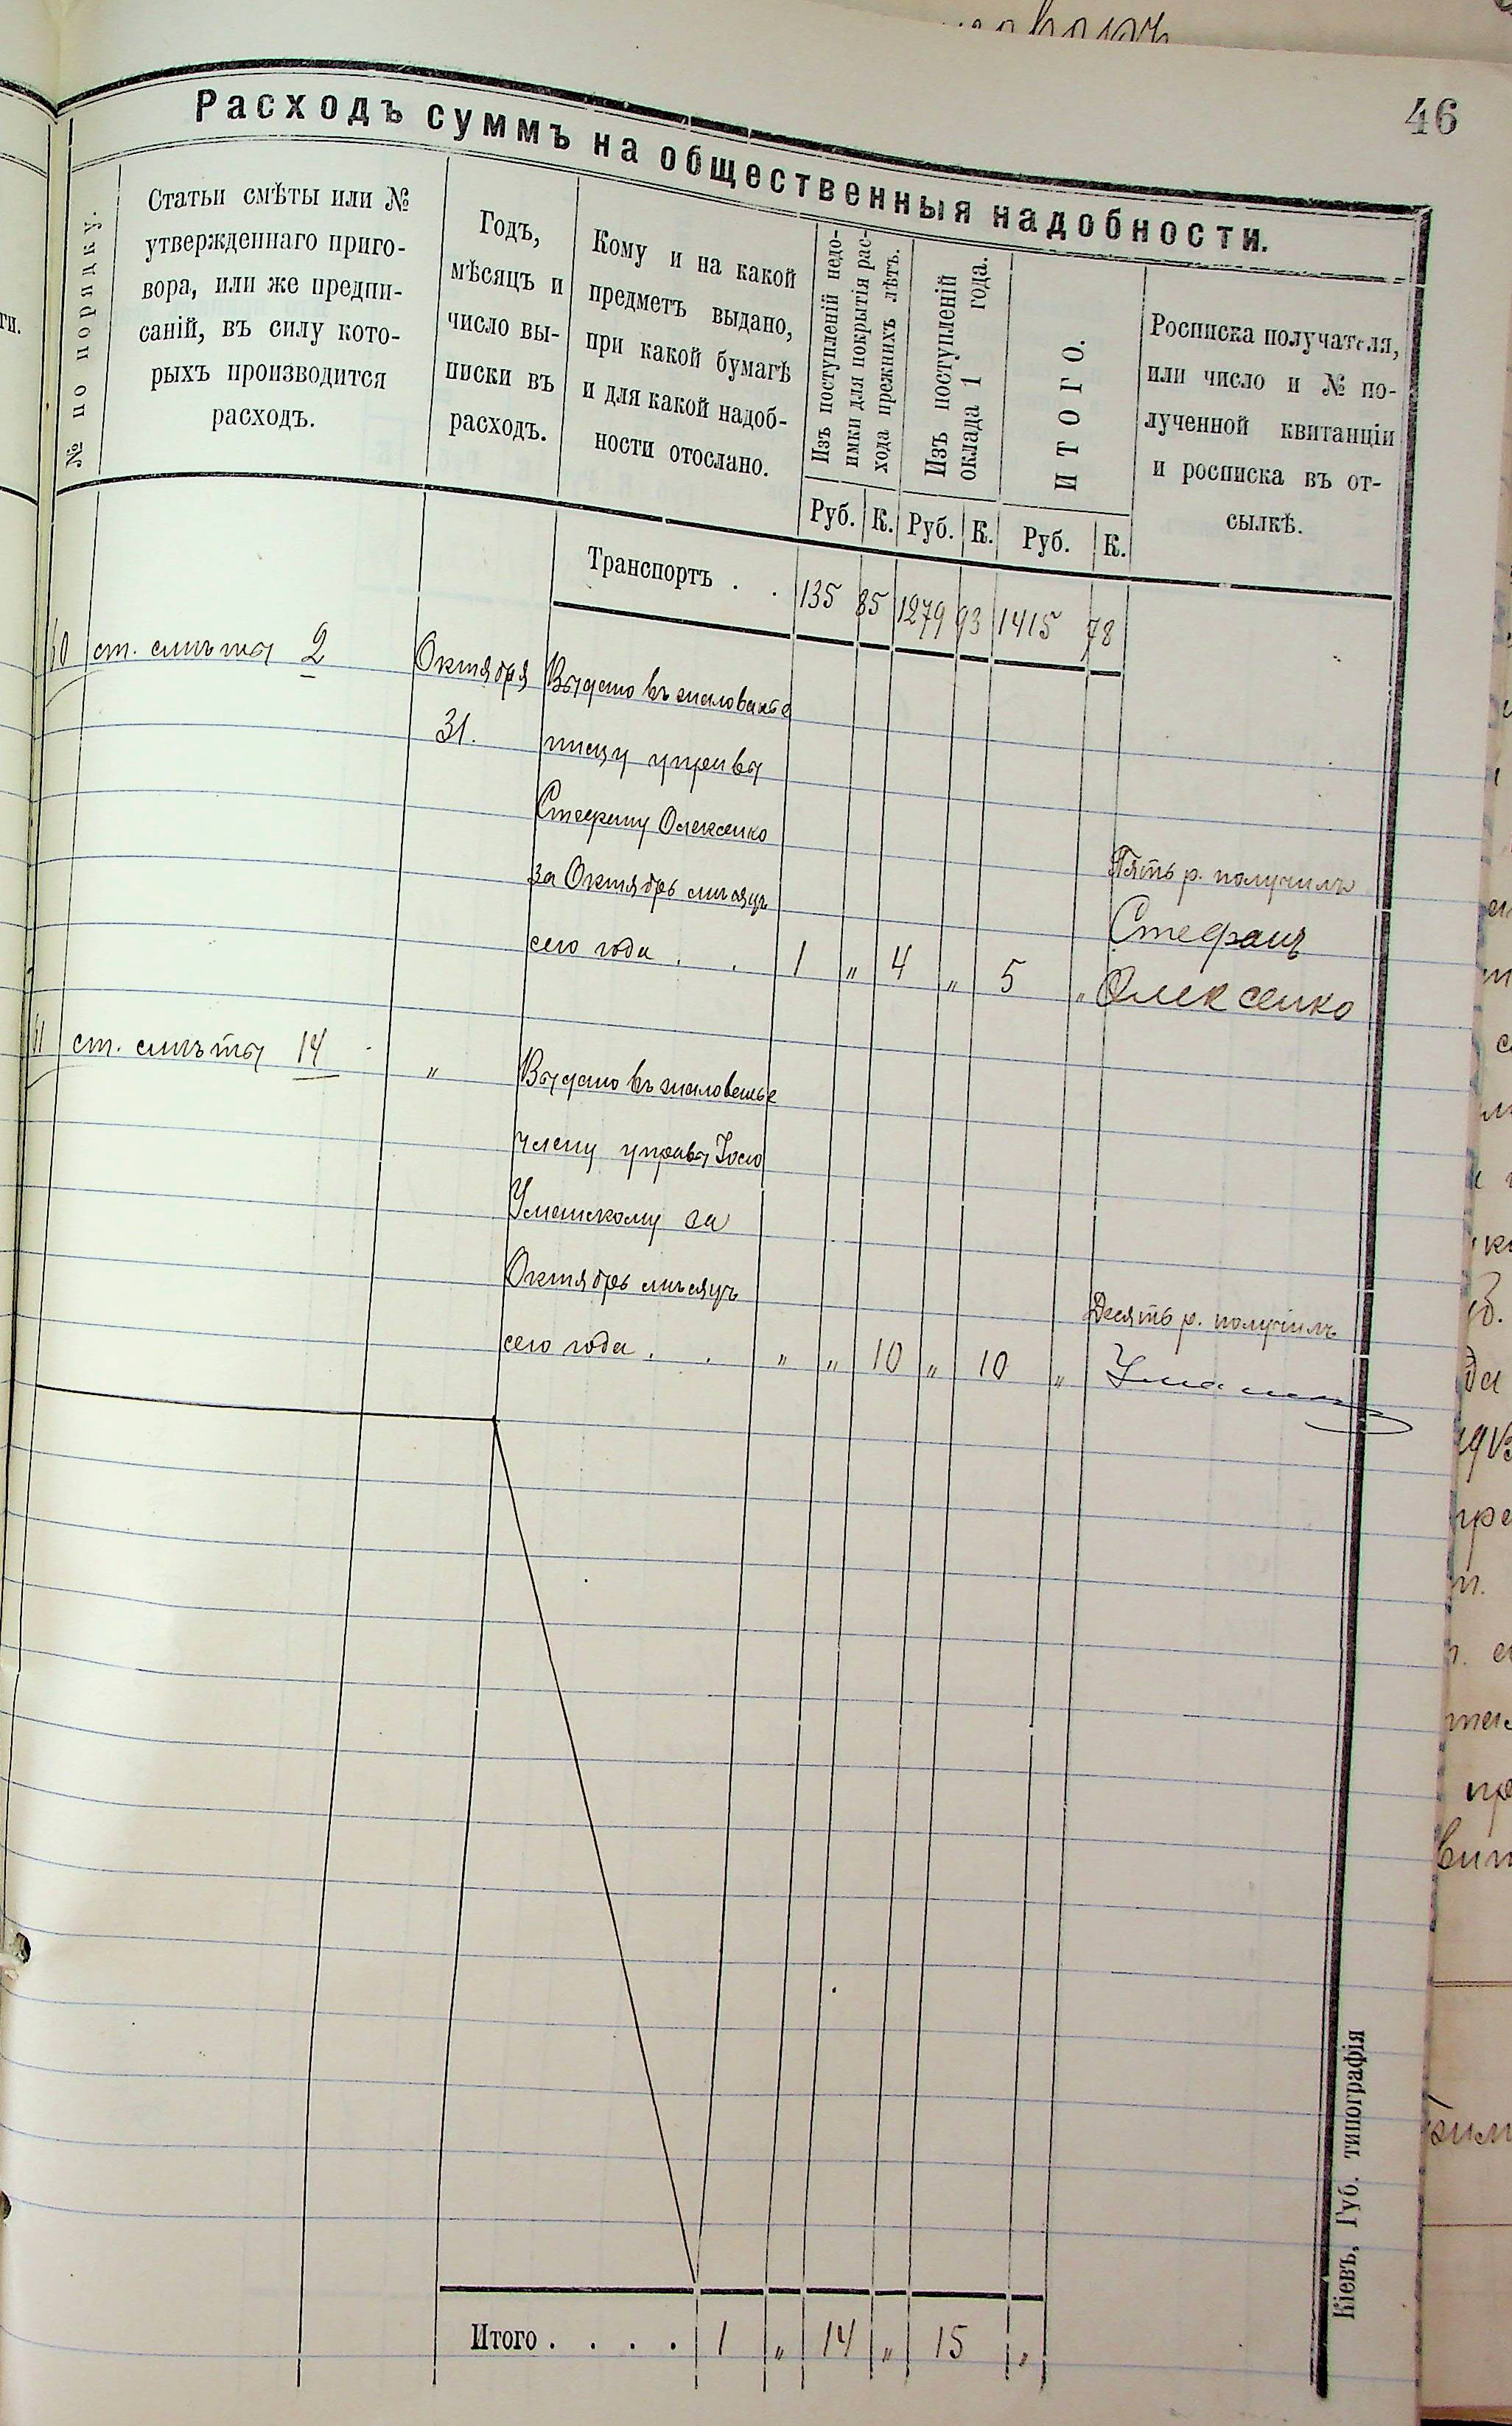 46
Расходъ суммъ на общественныя надобности.
№ по порядку.
Статьи смѣты или №
утвержденнаго приго-
вора, или же предпи-
саній, въ силу кото-
рыхъ производится
расходъ.
Годъ,
мѣсяцъ и
число вы-
писки въ
расходъ.
Кому и на какой
предметъ выдано,
при какой бумагѣ
и для какой надоб-
ности отослано.
Изъ поступленій недо-
имки для покрытія рас-
хода прежнихъ лѣтъ.
Изъ поступленій
оклада 1 года.
ИТОГО.
Росписка получателя,
или число и № по-
лученной квитанціи
и росписка въ от-
сылкѣ.
Руб. К. Руб. К. Руб. К.
Транспортъ . . 135 85 1279 93 1415 78
ст. смѣты 2 Октября Выдано въ жалованье
31. писцу управы
Стефану Олексенко
за Октябрь мѣсяцъ Пять р. получилъ
сего года . . 1 „ 4 „ 5 „ Стефанъ
Олексенко
ст. смѣты 14 „ Выдано въ жалованье
члену управы
Уманскому за
Октябрь мѣсяцъ Десять р. получилъ
сего года . . „ „ 10 „ 10 „
Итого . . . . 1 „ 14 „ 15 „
Кіевъ, Губ. типографія